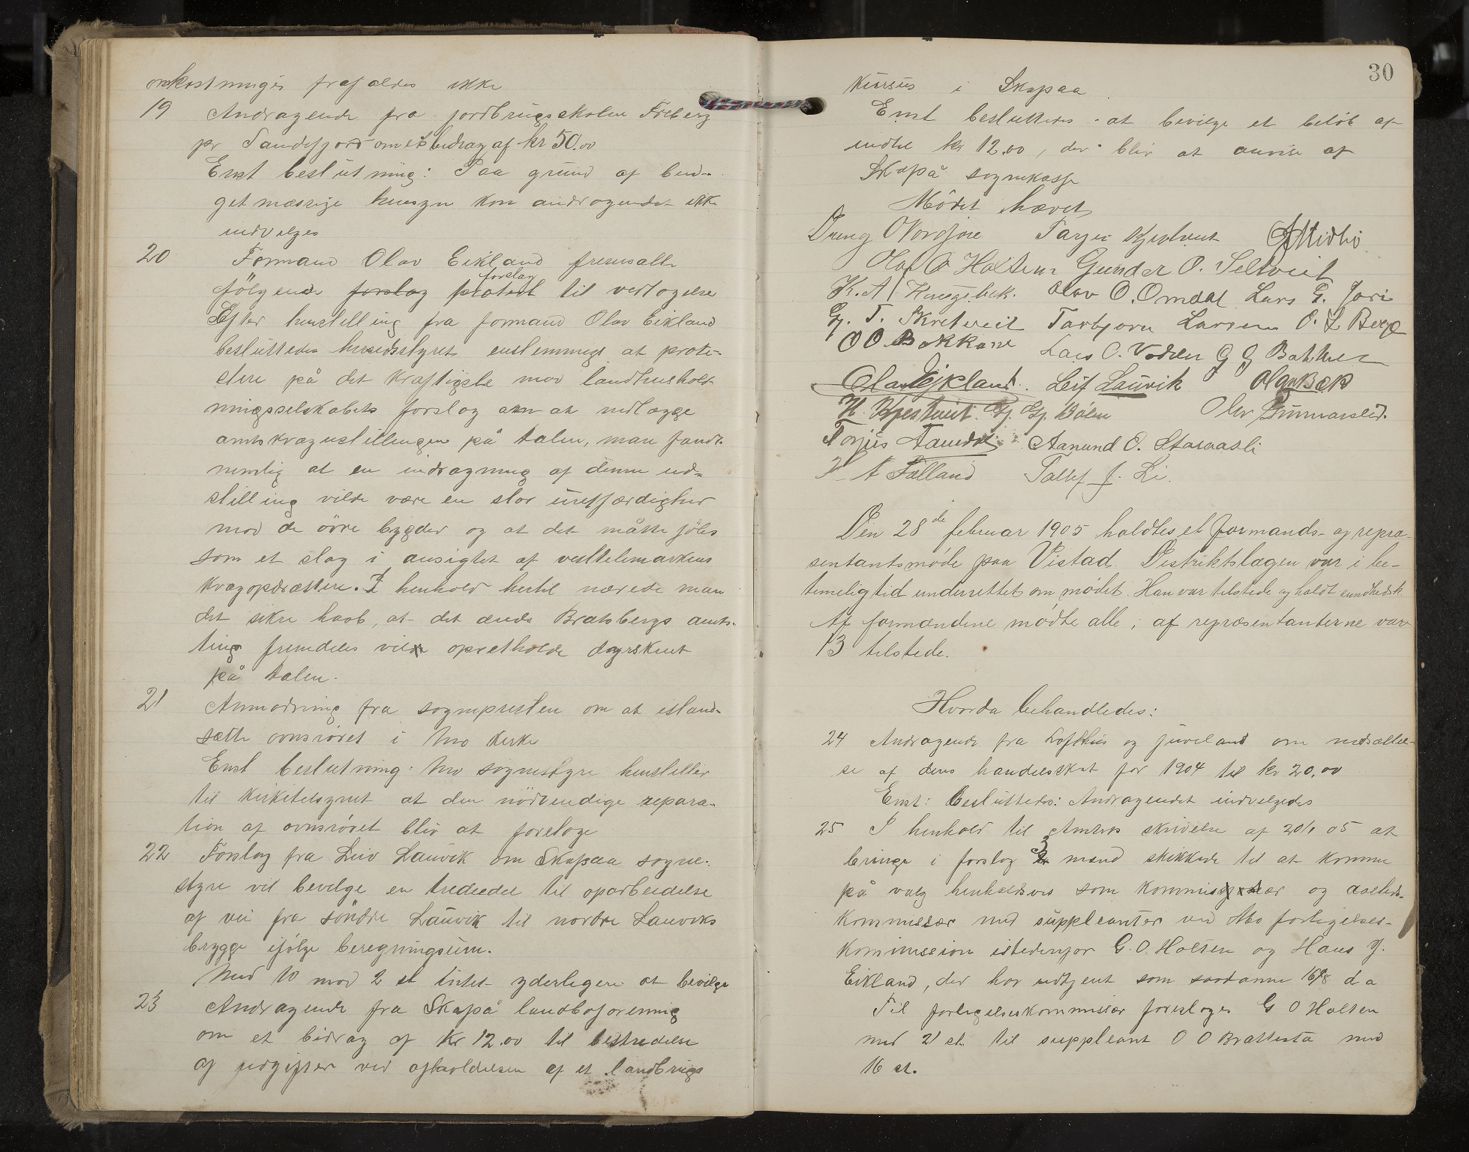 omkostninger frafaldes ikke
19 Andragende fra jordbrugsskolen Freberg
pr Sandefjord om et bidrag af kr 50.00
Enst beslutning: Paa grund af bud-
getmæssige hensyn kan andragendet ikke
indvilges
20 Formand Olav Eikland fremsatte
følgende forslag protest forslag til vedtagelse
Efter henstilling fra formand Olav Eikland
besluttedes herredsstyret enstemmigt at prote-
stere på det kraftigste mod landhushold-
ningsselskabets forslag om at nedlægge
amtskvægustillingen på Dalen, man fandt
nemlig at en inddragning af denne ud-
stilling vilde være en stor uretfærdighed
mod de övre bygder og at det måtte föles
som et slag i ansigtet af vesttelemarkens
kvægopdrættere. I henhold hertil nærede man
det sikre haab, at det ærede Bratsbergs amts-
ting fremdeles vilde opretholde dyrskuet
på Dalen.
21 Anmodning fra sognepresten om at istand-
sætte ovnsröret i Mo kirke
Enst beslutning. Mo sognestyre henstiller
til kirketilsynet at den nödvendige repara-
tion af ovnsröret blir at foretage
22 Forslag fra Leiv Lauvik om Skapaa sogne-
styre vil bevilge en trediedel til oparbeidelse
af vei fra söndre Lauvik til nordre Lauviks
brygge ifölge beregningssum.
Med 10 mod 2 st intet yderligere at bevilge
23 Andragende fra Skapå landboforening
om et bidrag af kr 12.00 til bestridelse
af udgifter ved afholdelsen af et landbrugs
30
kursus i Skapaa
Enst besluttedes at bevilge et belöb af
indtil kr 12.00, der blir at anvise af
Skapå sognekasse
Mödet hævet
Dreng O Nordjore Tarjei
Olaf O Holtene Gunder P. Seltveit
K. A. Haugebæk. Olav O. Omdal Lars G. Jore
G. T. Skretveit Torbjorn Larsen O. L Berge
O O Bakkane Lars O. G G Bakken
Olav Ejkland. Leif Lauvik Olav Bæk
H. G. Gj. Bölen Olav Gunnarslid.
Torjus Aanund O. Staraasli
H A Falland Tallef J. Li.
Den 28de februar 1905 holdtes et formands- og repræ-
sentantsmöde paa Vistad. Distriktslægen var i be-
timelig tid underrettet om mödet. Han var tilstede og holdt sundhedsk.
Af formændene mödte alle, af repræsentanterne var
13 tilstede.
Hvorda behandledes:
24 Andragende fra Lofthus og Juveland om nedsættel-
se af deres handelsskat for 1904 til kr 20,00
Enst: besluttedes: Andragendet indvilgedes
25 I henhold til Amtets skrivelse af 20/1 05 at
bringe i forslag 3 mænd skikkede til at komme
på valg henholdsvis som kommissær og
kommissær med suppleanter ved Mo forligelses-
kommission istedenfor G. O. Holten og Hans J.
Eikland, der har udtjent som saadanne 16/8 d a
Til forligelseskommissær foresloges G O Holten
med 21 st. til suppleant O O Brattestå med
16 st.